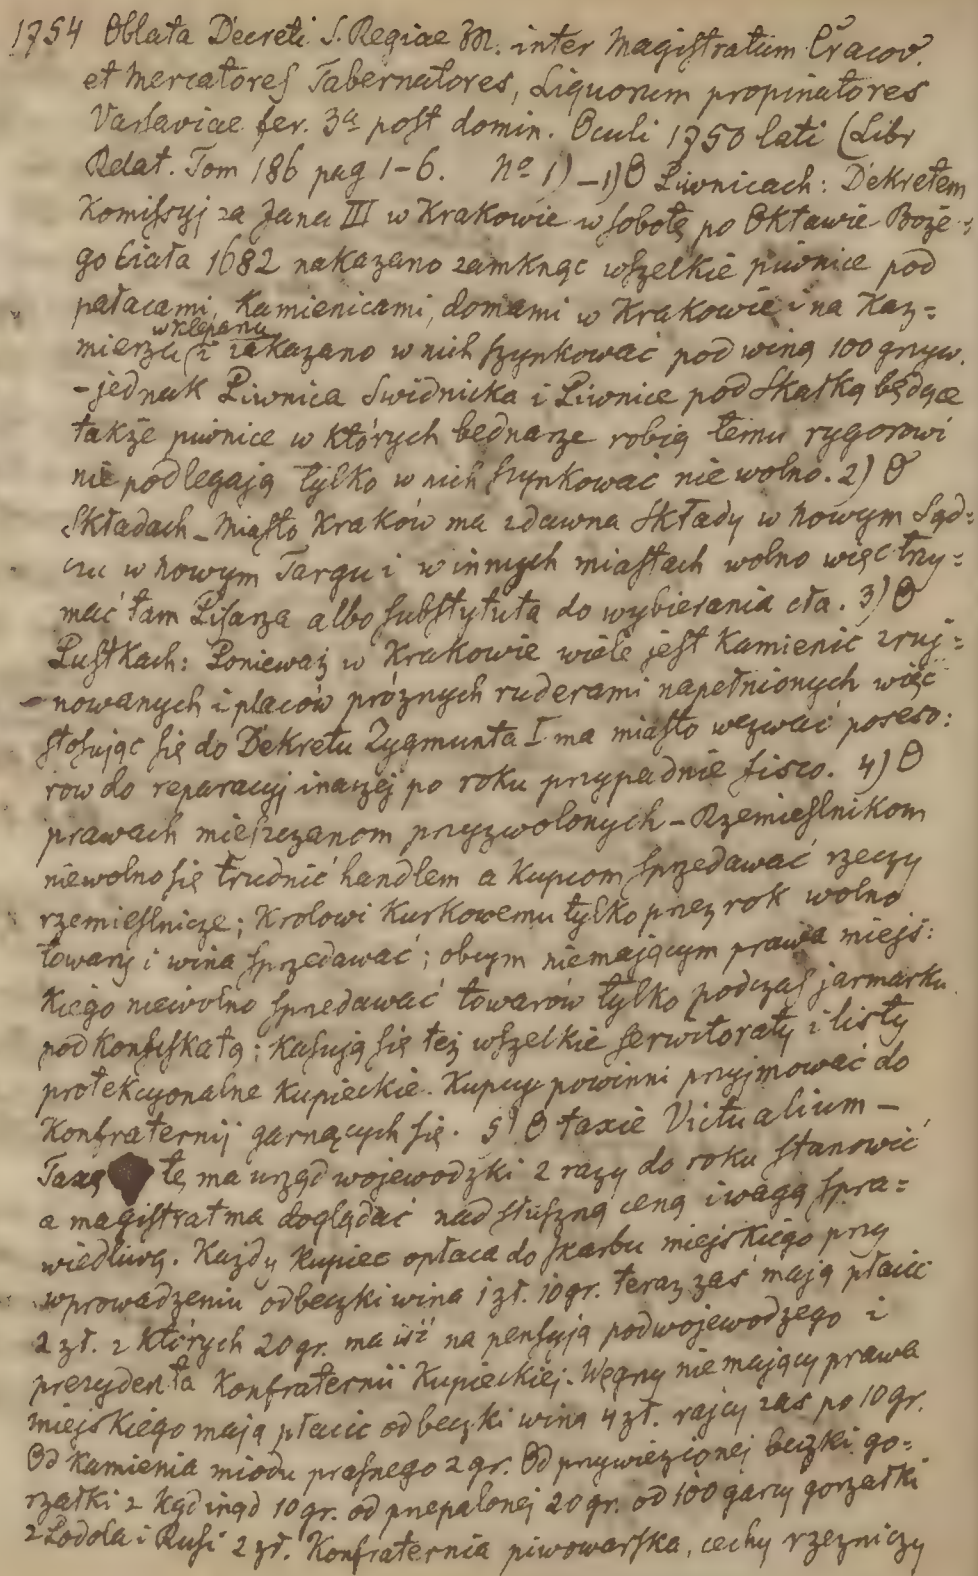 1754 Oblata Decreti S. Regiae M. inter Magistratum Cracov.
et Mercatores Tabernatores, Liquorum propinatores
Varsaviae fer. 3ª post domin. Oculi 1750 lati (Libr
Relat. Tom 186 pag 1-6. Nº 1) – 1) O Piwnicach: Dekretem
Komissyj za Jana III w Krakowie w sobotę po Oktawie Boże=
go Ciała 1682 nakazano zamknąć wszelkie piwnice pod
pałacami, Kamienicami, domami w Krakowie i na Kaz=
w Kleparzu
mierzu i zakazano w nich szynkować pod winą 100 grzyw.
– jednak Piwnica Swidnicka i Piwnice pod Skałką będące
także piwnice w których bednarze robią temu rygorowi
nie podlegają tylko w nich szynkować nie wolno. 2) O
Składach – Miasto Kraków ma zdawna Składy w Nowym Sąd=
czu w Nowym Targu i w innych miastach wolno więc trzy=
mać tam Pisarza albo substytuta do wybierania cła. 3) O
Pustkach: Ponieważ w Krakowie wiele jest Kamienic zruj=
nowanych i placów próżnych ruderami napełnionych więc
stosując się do Dekretu Zygmunta I. ma miasto wezwać poseso:
row do reparacyj inaczej po roku przypadnie fisco. 4) O
prawach mieszczanom przyzwolonych – Rzemieslnikom
niewolno się trudnić handlem a Kupcom sprzedawać rzeczy
rzemieslnicze; Krolowi Kurkowemu tylko przez rok wolno
towary i wina sprzedawać; obcym niemającym prawa miejs:
kiego niewolno sprzedawać towarów tylko podczas jarmarku
pod konfiskatą; Kasują się też wszelkie serwitoraty i listy
protekcyonalne Kupieckie. Kupcy powinni przyjmować do
Konfraternij garnących się. 5) O taxie Victualium –
Taxę tę ma urząd wojewodzki 2 razy do roku stanowić
a magistrat ma doglądać nad słuszną ceną i wagą spra=
wiedliwą. Każdy kupiec opłaca do skarbu miejskiego przy
wprowadzeniu od beczki wina 1 zł. 10 gr. teraz zaś mają płacić
2 zł. z których 20 gr. ma iść na pensyją podwojewodzego i
prezydenta Konfraternii Kupieckiej. Węgrzy nie mający prawa
miejskiego mają płacic od beczki wina 4 zł. rajcy zas po 10 gr.
Od Kamienia miodu prasnego 2 gr. Od przywiezionej beczki go=
rzałki z kądinąd 10 gr. od przepalonej 20 gr. od 100 garcy gorzałki
z Podola i Rusi 2 zł. Konfraternia piwowarska, cechy rzezniczy